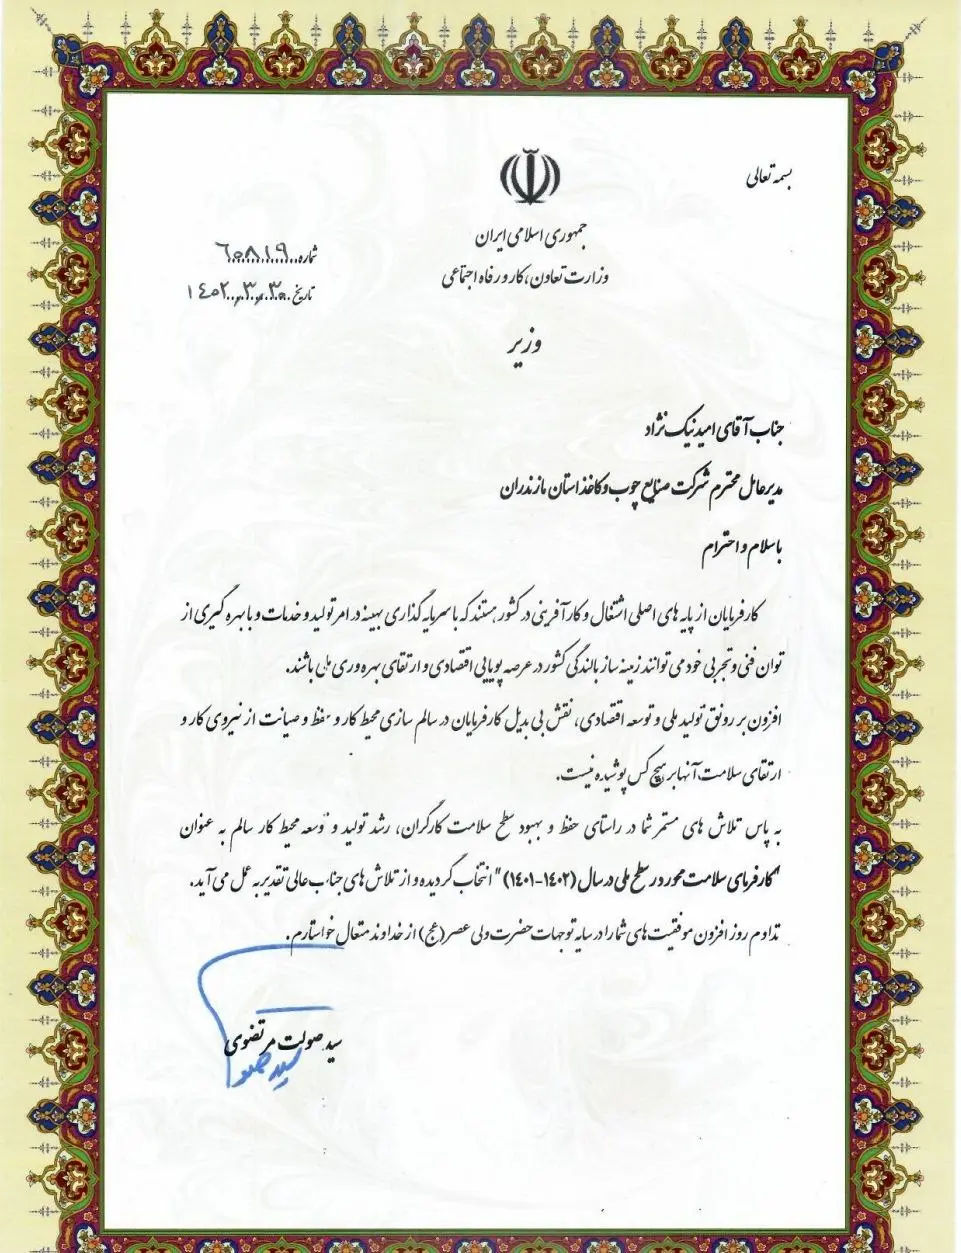 بسمه تعالی
جمهوری اسلامی ایران
وزارت تعاون، کار و رفاه اجتماعی
وزیر
شماره ۶۰۸۱۹
تاریخ ۱۴۰۲.۰۳.۳۰
جناب آقای امید نیک نژاد
مدیرعامل محترم شرکت صنایع چوب و کاغذ استان مازندران
باسلام و احترام
کارفرمایان از پایه های اصلی اشتغال و کارآفرینی در کشور هستند که با سرمایه گذاری بهینه در امر تولید و خدمات و با بهره گیری از
توان فنی و تجربی خود می توانند زمینه ساز بالندگی کشور در عرصه پویایی اقتصادی و ارتقای بهره وری ملی باشند.
افزون بر رونق تولید ملی و توسعه اقتصادی، نقش بی بدیل کارفرمایان در سالم سازی محیط کار و حفظ و صیانت از نیروی کار و
ارتقای سلامت آنها بر هیچ کس پوشیده نیست.
به پاس تلاش های مستمر شما در راستای حفظ و بهبود سطح سلامت کارگران، رشد تولید و توسعه محیط کار سالم به عنوان
"کارفرمای سلامت محور در سطح ملی در سال (۱۴۰۲-۱۴۰۱)" انتخاب گردیده و از تلاش های جنابعالی تقدیر به عمل می آید.
تداوم روز افزون موفقیت های شما را در سایه توجهات حضرت ولی عصر (عج) از خداوند متعال خواستارم.
سید صولت مرتضوی